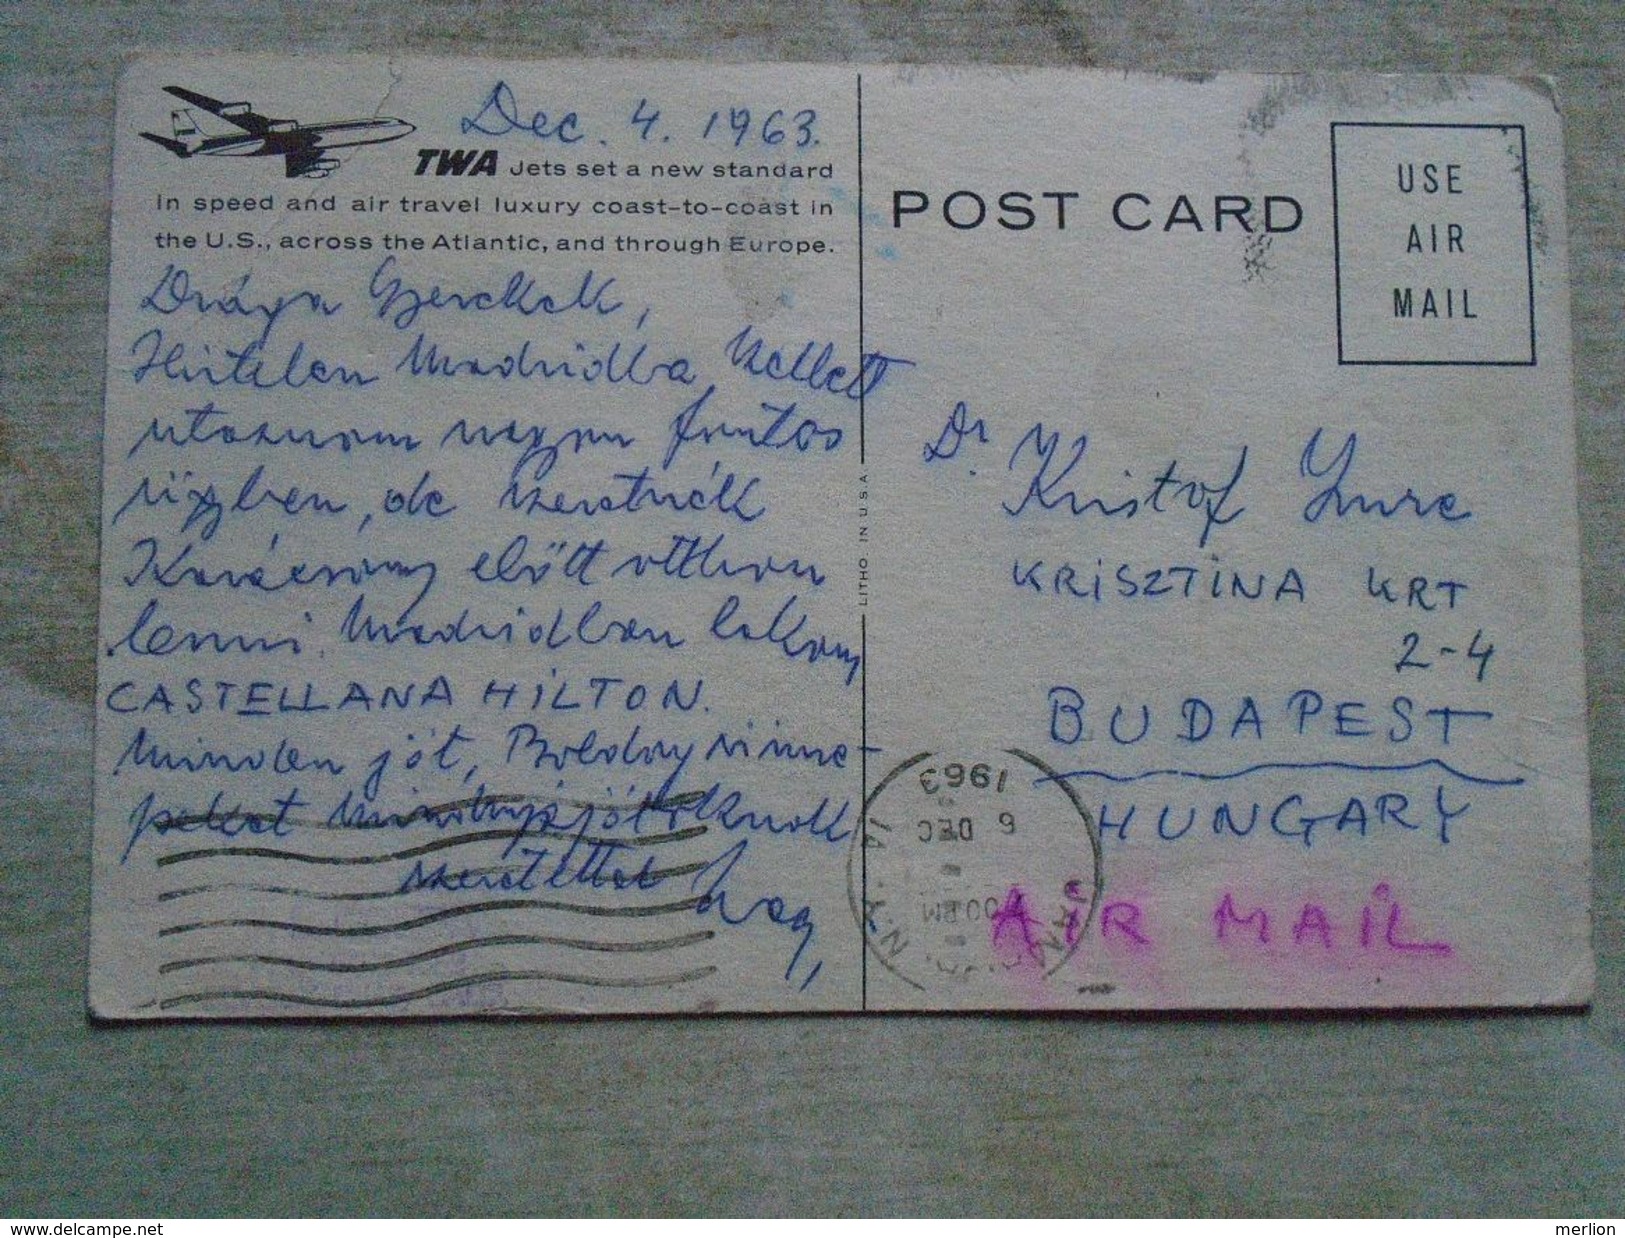 Dec. 4. 1963.
TWA Jets set a new standard
in speed and air travel luxury coast-to-coast in
the U.S., across the Atlantic, and through Europe.
Drága Gyerekek,
Hirtelen Madridba kellett
utaznom nagyon fontos
ügyben, de szeretnék
Karácsony előtt otthon
lenni. Madridban lakom
CASTELLANA HILTON.
Minden jót, Boldog ünne-
peket mindnyájótoknak
szeretettel
POST CARD
USE
AIR
MAIL
LITHO IN U.S.A.
Dr. Kristof Imre
KRISZTINA KRT
2-4
BUDAPEST
HUNGARY
AIR MAIL
JAMAICA, N.Y.
PM
6 DEC
1963
www.delcampe.net
merlion